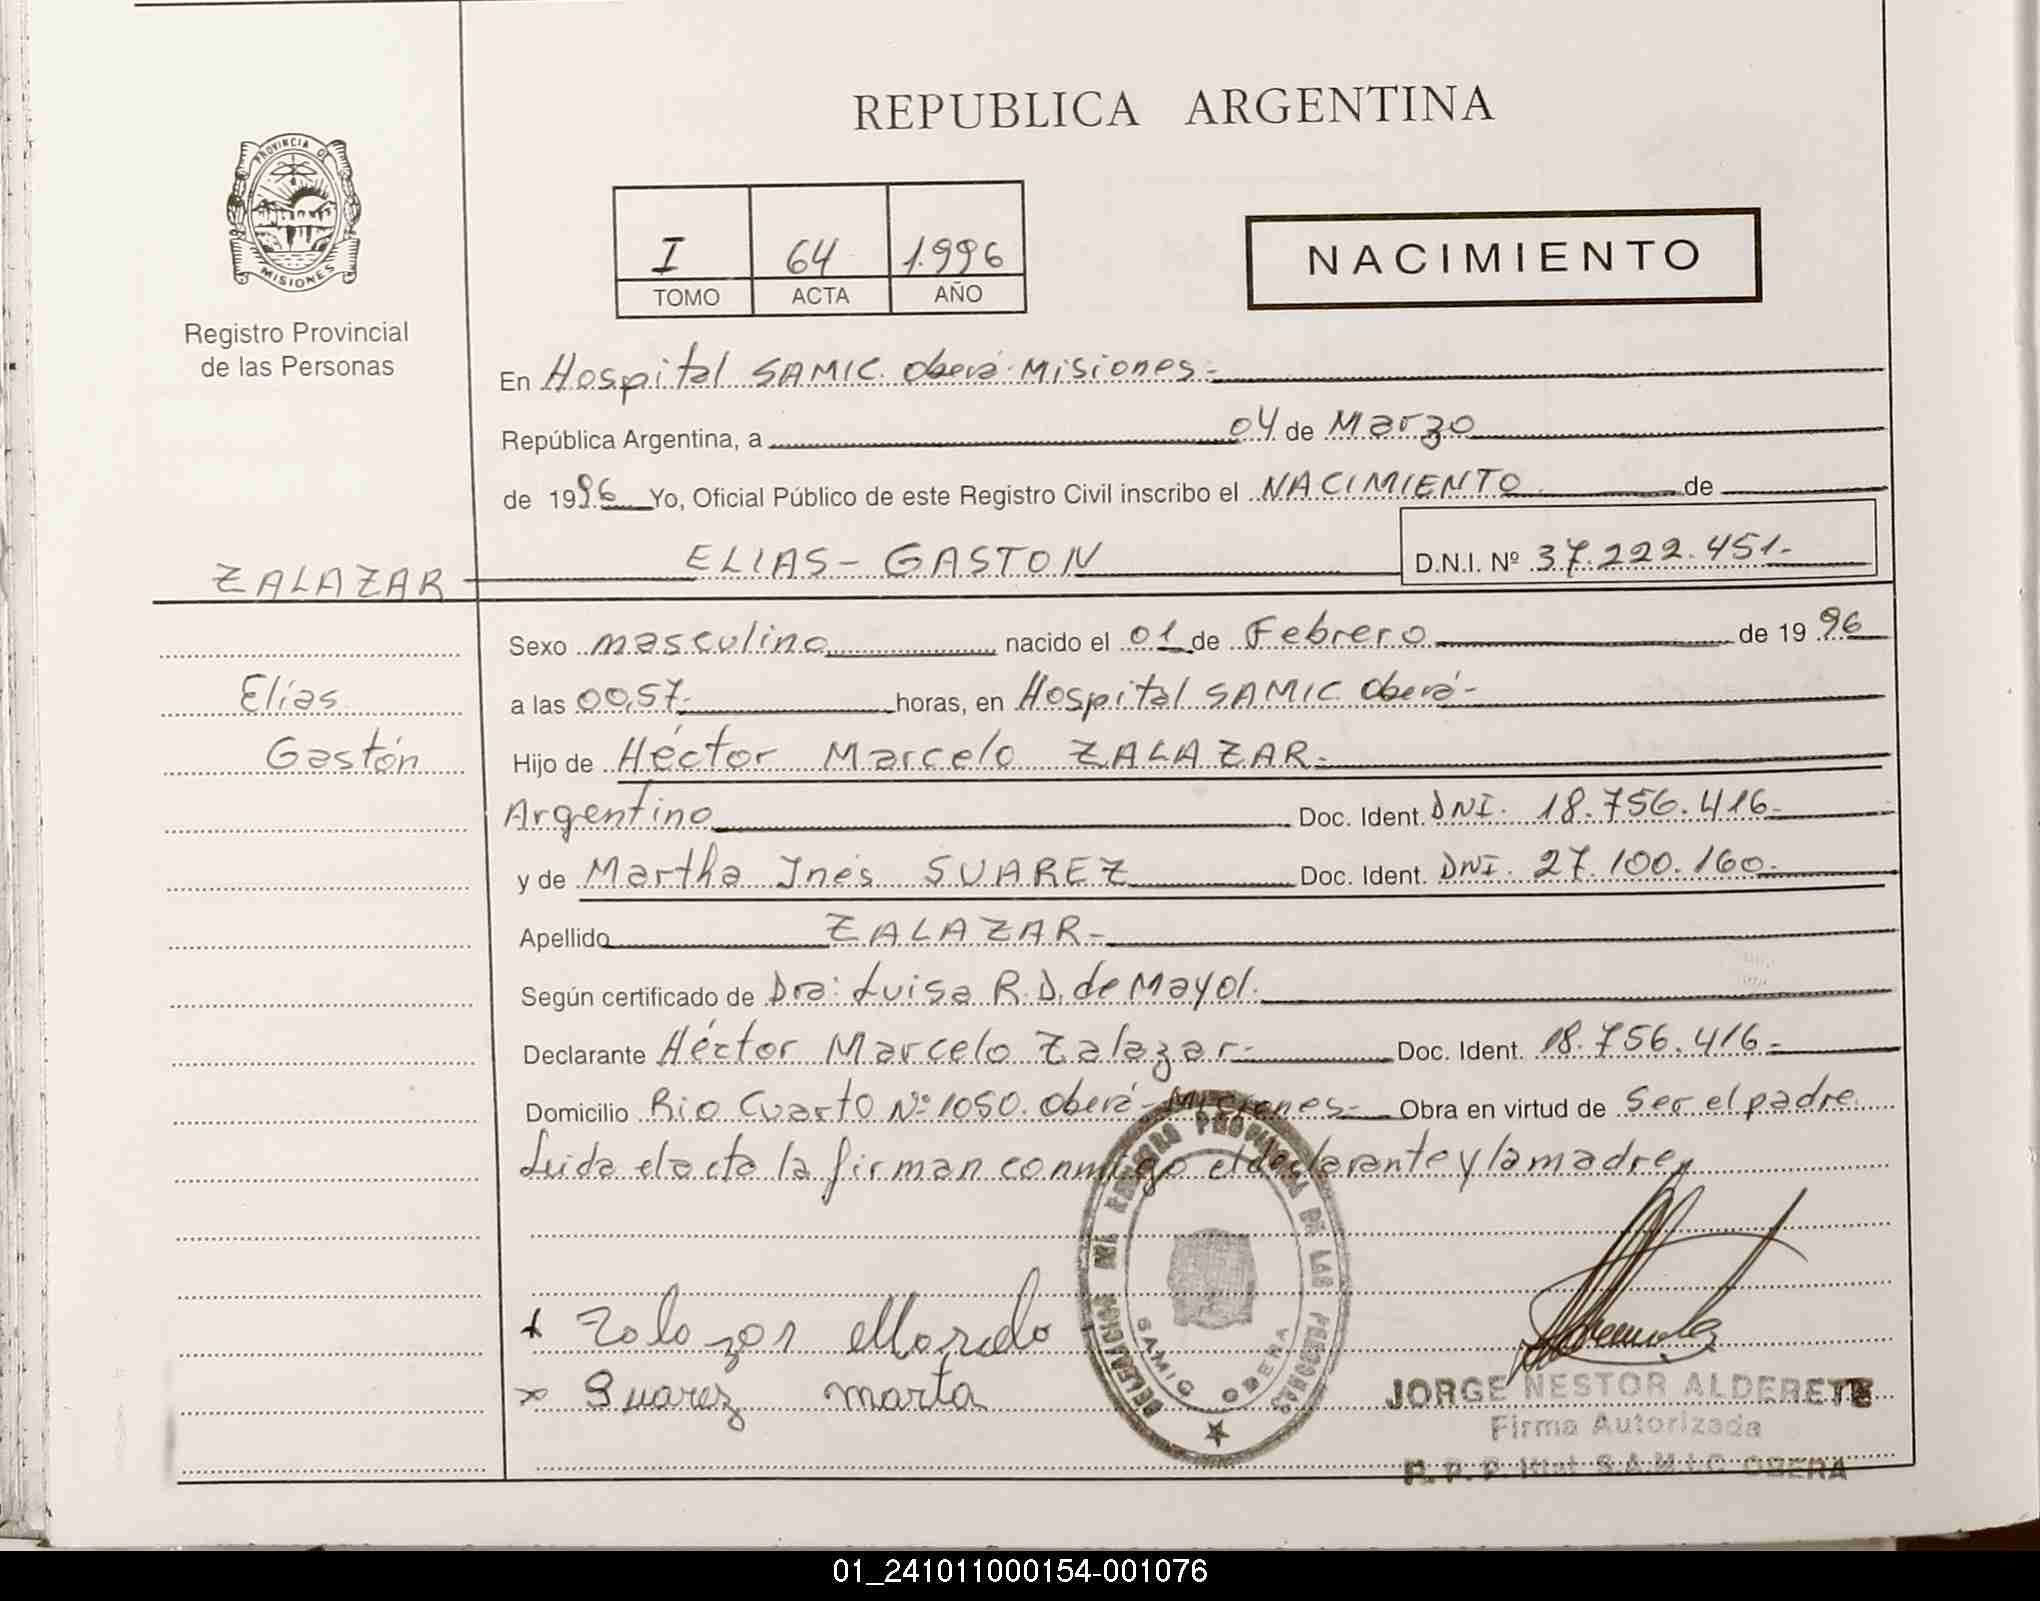 REPUBLICA ARGENTINA
PROVINCIA DE
MISIONES
Registro Provincial
de las Personas
I 64 1.996
TOMO ACTA AÑO
NACIMIENTO
En Hospital SAMIC. Oberá-Misiones.-
República Argentina, a 04 de Marzo
de 1996 Yo, Oficial Público de este Registro Civil inscribo el NACIMIENTO de
ZALAZAR ELIAS-GASTON D.N.I. Nº 37.222.451.-
Sexo masculino nacido el 01 de Febrero de 1996
Elías
Gastón
a las 00,57.- horas, en Hospital SAMIC. Oberá-
Hijo de Héctor Marcelo ZALAZAR.-
Argentino Doc. Ident. DNI. 18.756.416-
y de Martha Inés SUAREZ Doc. Ident. DNI. 27.100.160.-
Apellido ZALAZAR-
Según certificado de Dra: Luisa R.D. de Mayol.
Declarante Héctor Marcelo Zalazar- Doc. Ident. 18.756.416-
Domicilio Rio Cuarto Nº 1050. Oberá-Misiones- Obra en virtud de Ser el padre
Leida el acta la firman conmigo el declarante y la madre
x Zalazar Marcelo
x Suarez marta
DELEGACION DEL REGISTRO PROVINCIAL DE LAS PERSONAS
SAMIC OBERA
JORGE NESTOR ALDERETE
Firma Autorizada
R. P. P. S.A.M.I.C OBERA
01_241011000154-001076